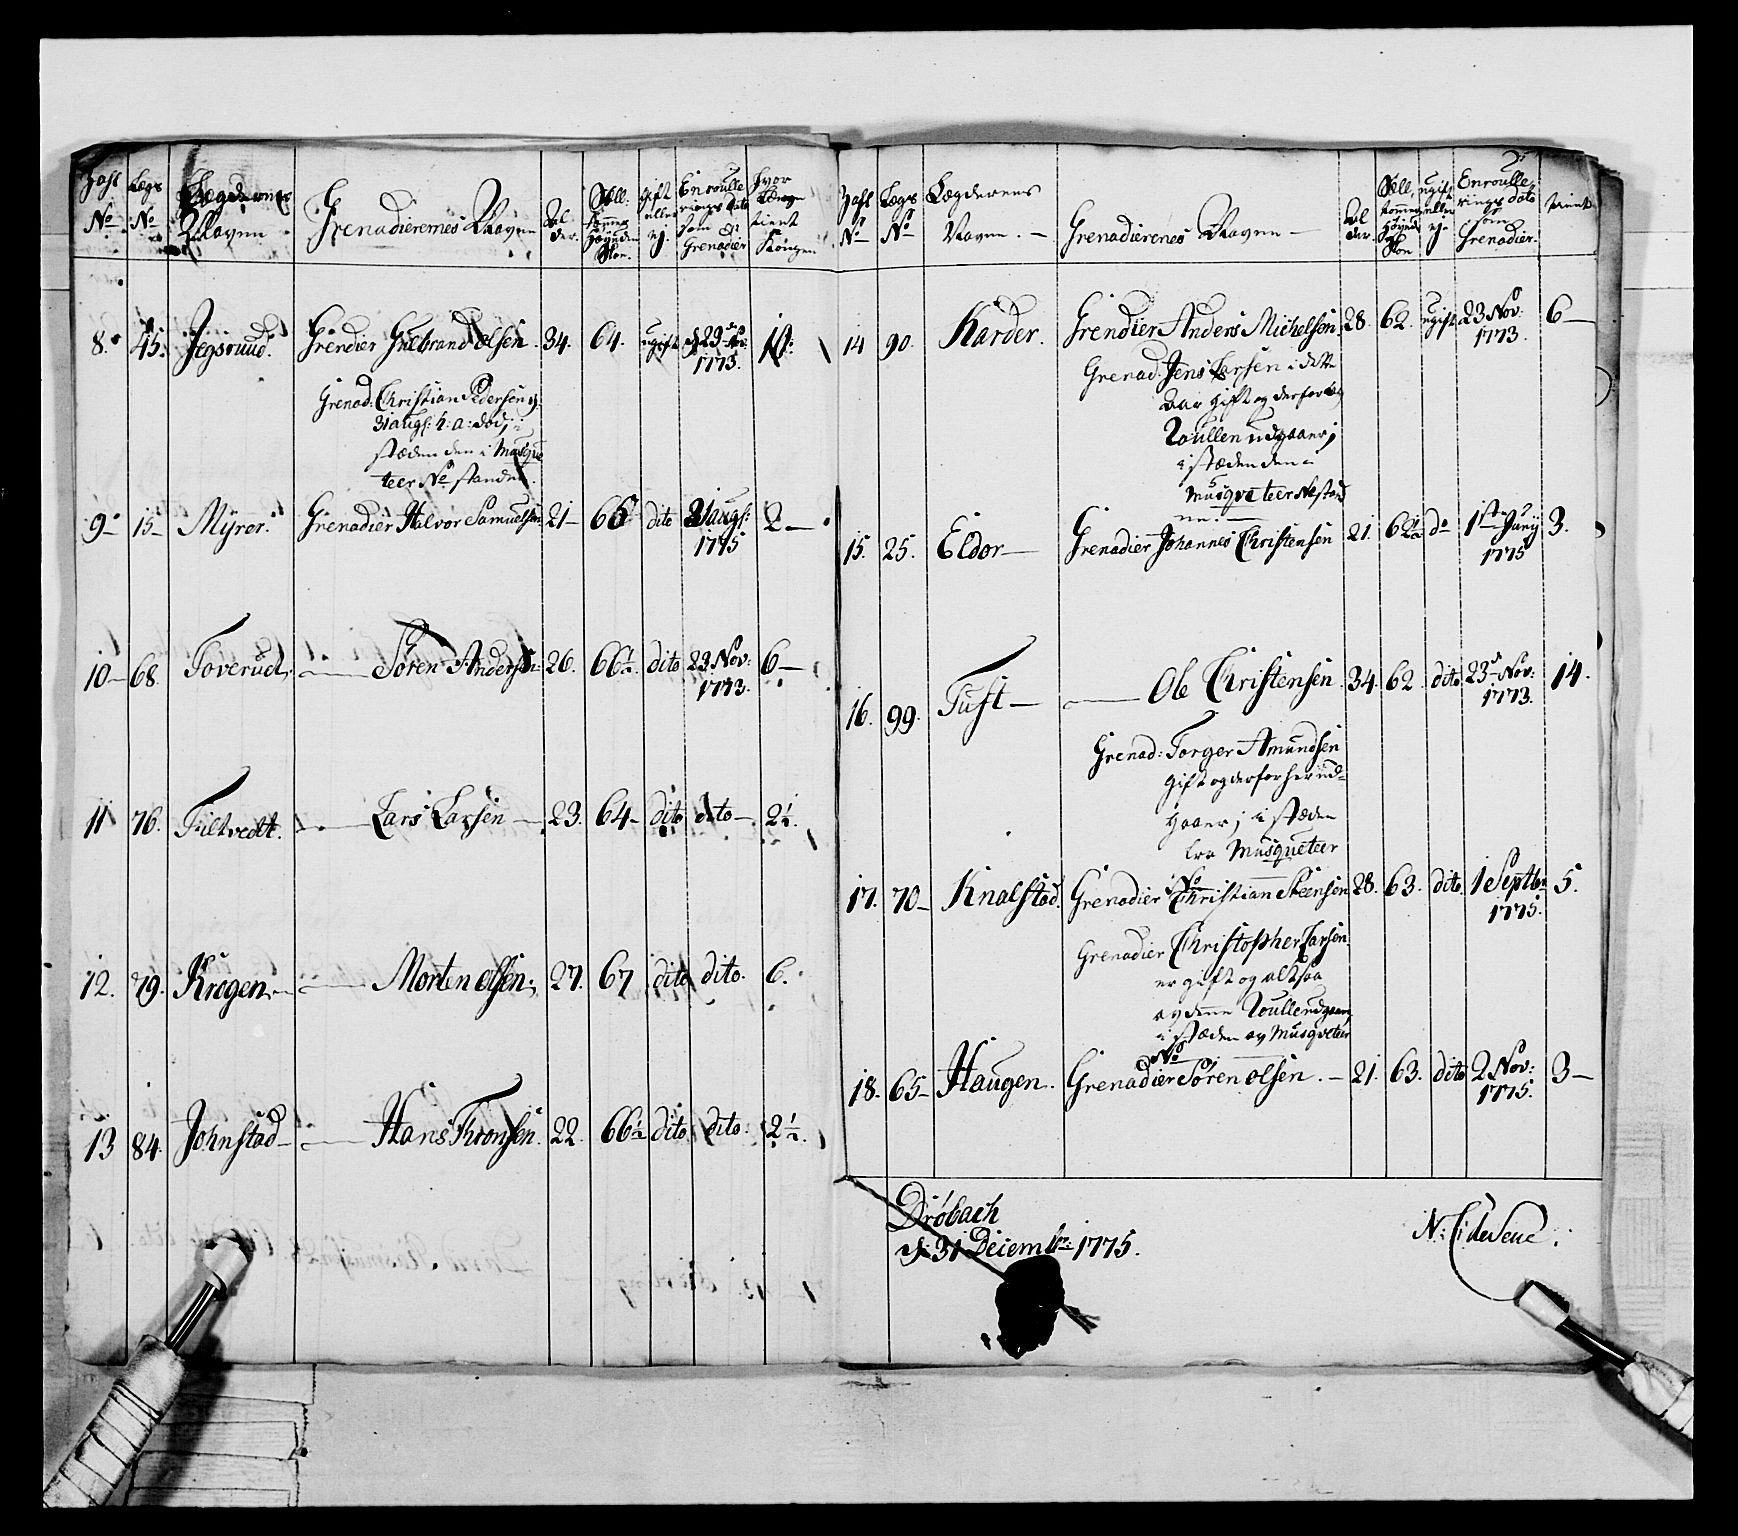 Zahl No
Lægs No
Lægdernes Navn
Grenadierernes Navn
Al der.
Gift eller ej.
Enroulle rings dato som Grenadier
hvor længe tient Kongen
8. 45. Jegsruud. Grendier Gulbrand olsen. 34. 64. ugift d 23de Nov: 1773. 10:
Grenad: Christian Pedersen
31 augs: h: a: død; i
stæden den i Musque
teer No standne.
9. 15. Myrer. Grenadier Halvor Samuelsen 21 66 dito 31 augs: 1775 2
10 68. Toverud. Søren Andersen: 26. 66½ dito 23 Nov: 1773. 6
11 76. Tultvedt. Lars Larsen 23. 64 dito dito 2½.
12. 79. Krogen. Morten olsen. 27. 67 dito dito. 6.
13 84. Johnstad Hans Tronsen. 22. 66½ dito dito: 2½.
Zahl No
Lægs No
Lægdernes Navn.
Grenadierenes Navn
Al der.
ugift eller ej.
Enroulle rings dato som Grenadier.
tient
14 90. Karder. Grendier Anders Michelsen 28. 62. ugift 23 Nov: 1773. 6
Grenad. Jens Larsen i dette
Aar gift og derfor
Roullen udgaaer;
i stæden den i
Musqveteer No stand
ne.
15. 25. Eldor Grenadier Johannes Christensen 21. 62½ do 1ste Juny 1775 3.
16. 99. Tuft Ole Christensen 34. 62. dito 23de Nov: 1773. 14.
Grenad: Torger Amundsen
gift og derfor her ud=
gaaer; i stæden
fra Musqueteer
No
17. 70 Knalstad. Grenadier Christian Steensen 28. 63. dito. 1 Septbr 1775. 5.
Grenadier Christopher Larsen
er gift og altsaa
av denne Roulle udgaaer,
i stæden av Musqveteer
No
18. 65 Haugen. Grenadier Søren olsen. 21. 63. dito 2 Nov: 1775. 3
Drøbach
d: 31 Decembr: 1775.